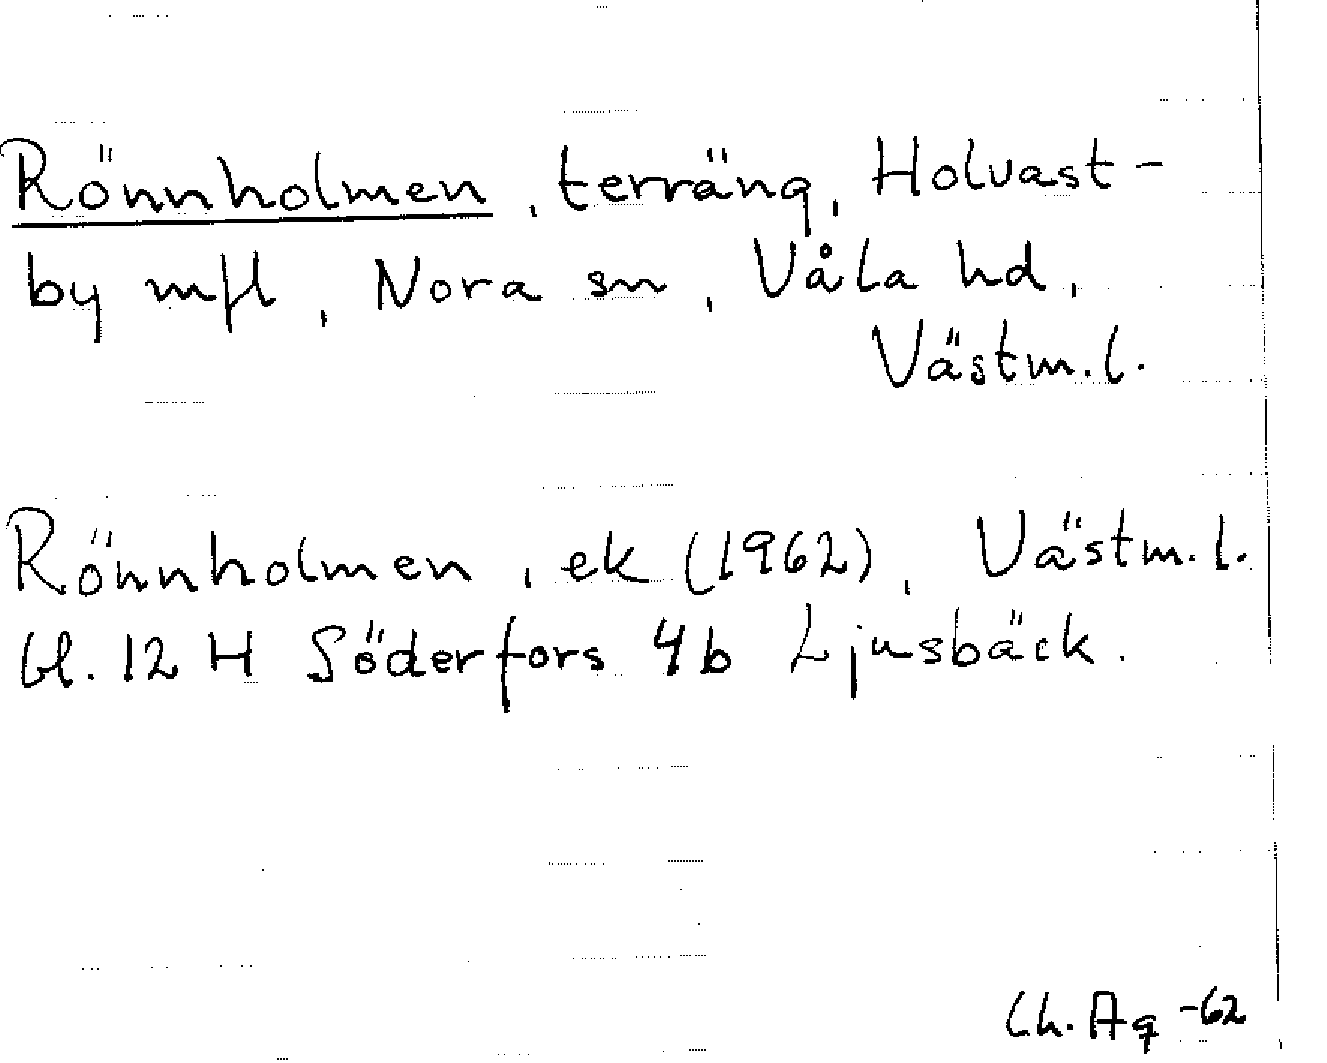 Rönnholmen, terräng, Holvast-
by mfl, Nora sn, Våla hd,
Västm.l.
Rönnholmen, ek (1962), Västm.l.
bl. 12 H Söderfors 4b Ljusbäck.
Ch. Ag -62